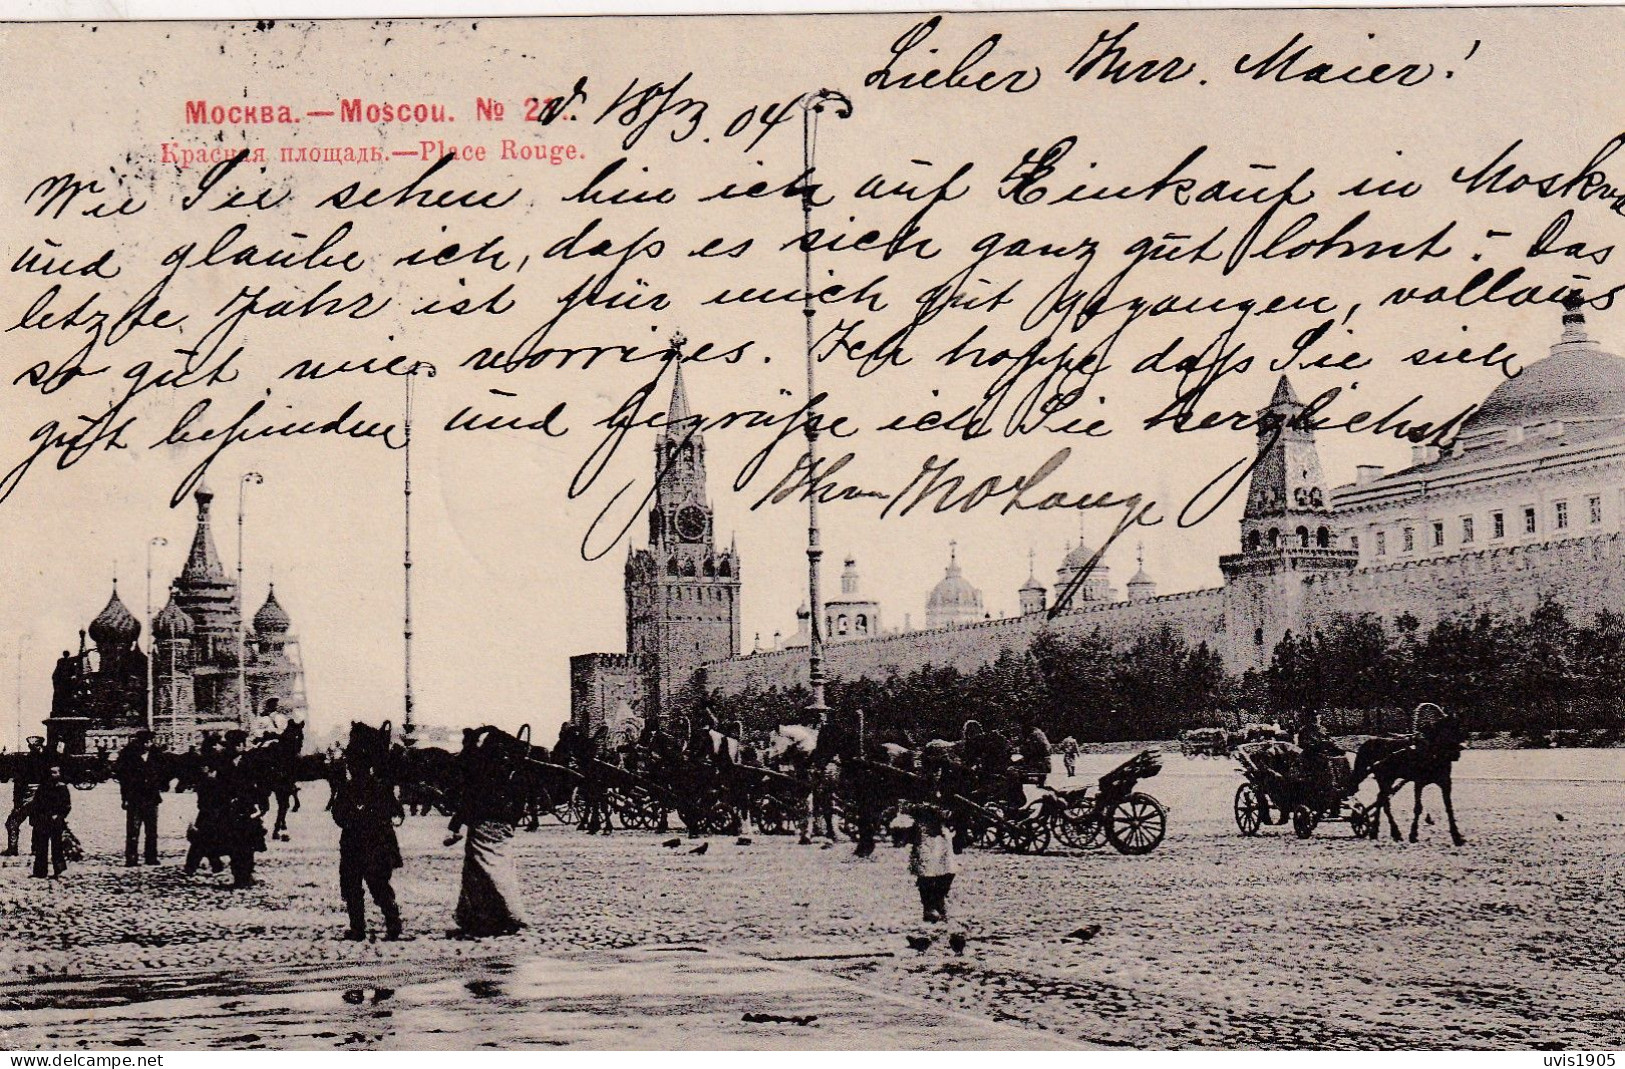 Lieber Herr. Maier!
Москва.—Moscou. № 2
d. 18/3. 04
Красная площадь.—Place Rouge.
Wie Sie sehen bin ich auf Einkauf in Moskva
und glaube ich, daß es sich ganz gut lohnt. – Das
letzte Jahr ist für mich gut gegangen, vollaus
so gut wie vorriges. Ich hoffe daß Sie sich
gut befinden und begrüße ich Sie herzlichst
Ihr
uvis1905